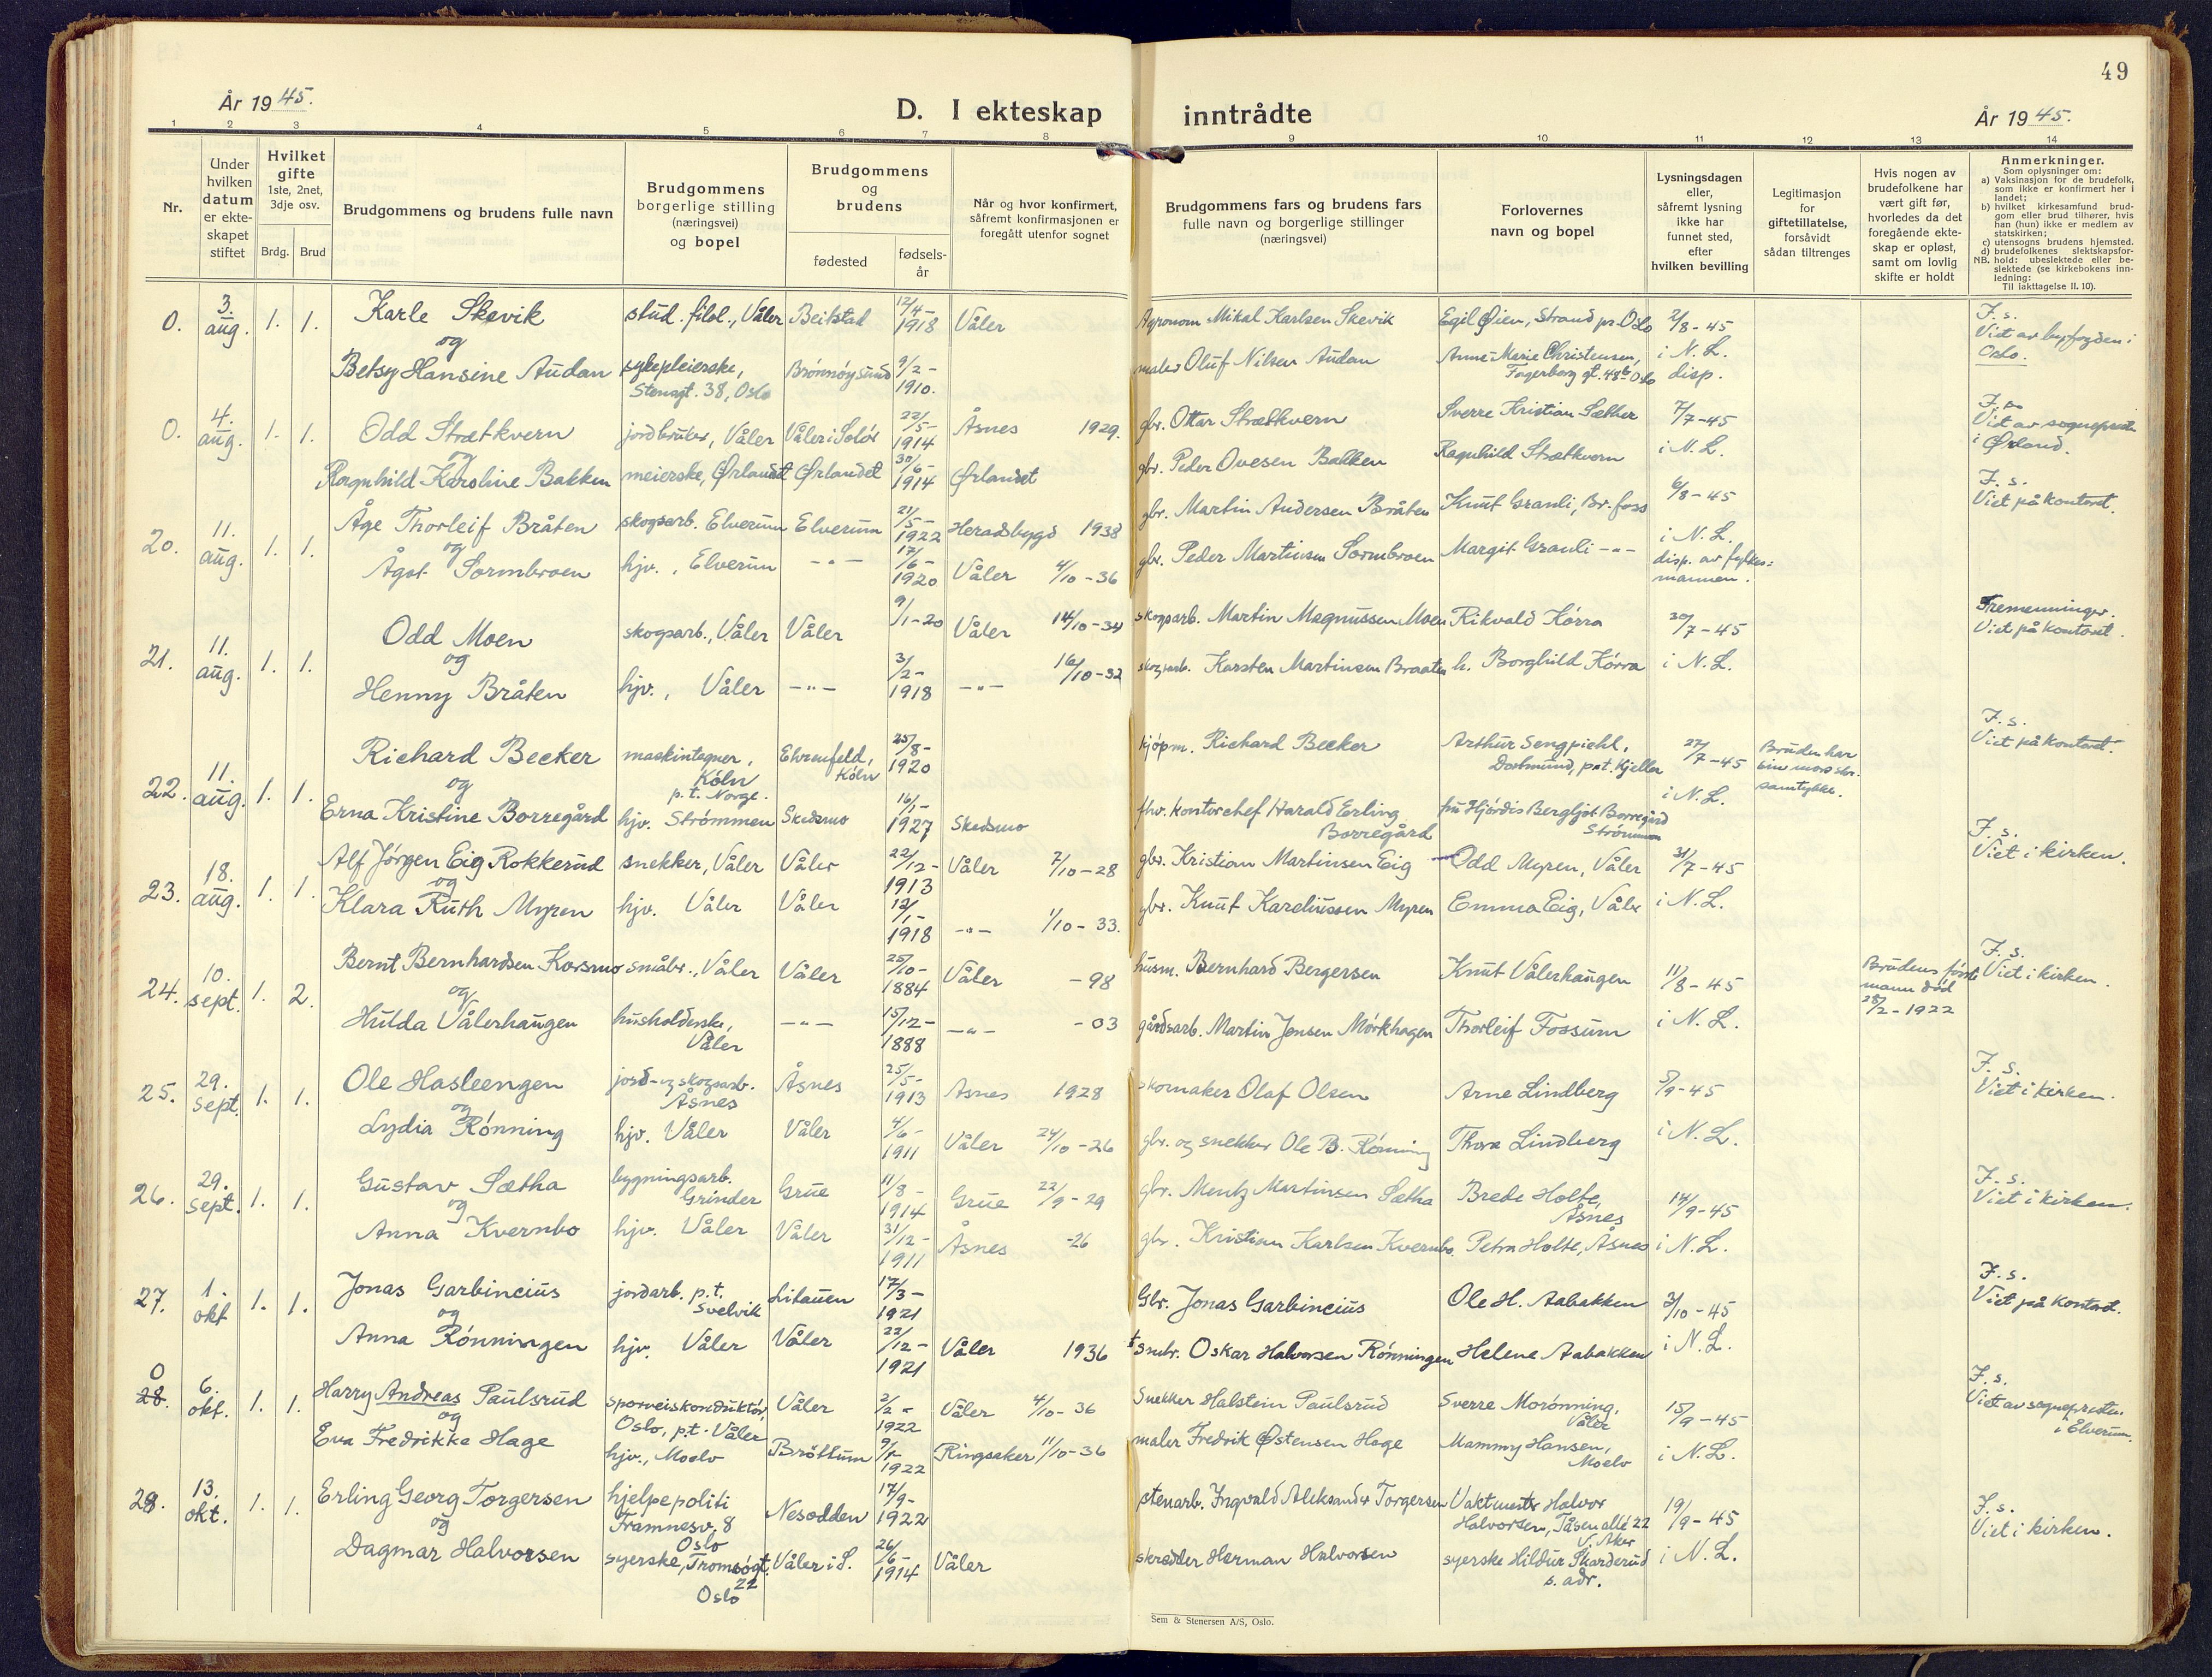 49
År 1945.
D. I ekteskap inntrådte
År 1945.
1 2 3 4 5 6 7 8 9 10 11 12 13 14
Nr.
Under
hvilken
datum
er ekte-
skapet
stiftet
Hvilket
gifte
1ste, 2net,
3dje osv.
Brdg. Brud
Brudgommens og brudens fulle navn
Brudgommens
borgerlige stilling
(næringsvei)
og bopel
Brudgommens
og
brudens
fødested
fødsels-
år
Når og hvor konfirmert,
såfremt konfirmasjonen er
foregått utenfor sognet
Brudgommens fars og brudens fars
fulle navn og borgerlige stillinger
(næringsvei)
Forlovernes
navn og bopel
Lysningsdagen
eller,
såfremt lysning
ikke har
funnet sted,
efter
hvilken bevilling
Legitimasjon
for
giftetillatelse,
forsåvidt
sådan tiltrenges
Hvis nogen av
brudefolkene har
vært gift før,
hvorledes da det
foregående ekte-
skap er opløst,
samt om lovlig
skifte er holdt
Anmerkninger.
Som oplysninger om:
a) Vaksinasjon for de brudefolk,
som ikke er konfirmert her i
landet;
b) hvilket kirkesamfund brud-
gom eller brud tilhører, hvis
han (hun) ikke er medlem av
statskirken;
c) utensogns brudens hjemsted.
d) brudefolkenes slektskapsfor-
NB. hold: ubeslektede eller be-
slektede (se kirkebokens inn-
ledning:
Til iakttagelse II. 10).
0. 3. aug. 1. 1. Karle Skevik stud. filol., Våler Beitstad 12/4-1918 Våler Agronom Mikal Karlsen Skevik Egil Øien, Strand pr. Oslo 2/8-45 F. s.
og Viet av byfogden i
Betsy Hansine Audan sykepleierske, Brønnøysund 9/2-1910. maler Oluf Nilsen Audan Anne-Marie Christensen, i N. L. Oslo.
Stensgt. 38, Oslo Fagerborg gt. 48b Oslo disp.
0. 4. aug. 1. 1. Odd Strætkvern jordbruker, Våler Våler i Solør 22/5-1914 Åsnes 1929. gbr. Ottar Strætkvern Sverre Kristian Sæther 7/7-45 F. s.
og Viet av sogneprest
Ragnhild Karoline Bakken meierske, Ørlandet Ørlandet 30/6-1914 Ørlandet gbr. Peder Ovesen Bakken Ragnhild Strætkvern i N. L. i Ørland.
20. 11. aug. 1. 1. Åge Thorleif Bråten skogsarb. Elverum Elverum 21/5-1922 Heradsbygd 1938 gbr. Martin Andersen Bråten Knut Granli, Br. foss 6/8-45 F. s.
og Viet på kontoret.
Ågot Sormbroen hjv., Elverum -"- 17/6-1920 Våler 4/10-36 gbr. Peder Martinsen Sormbroen Margit Granli -"- i N. L.
disp. av fylkes=
mannen.
21. 11. aug. 1. 1. Odd Moen skogsarb., Våler Våler 9/1-20 Våler 14/10-34 skogsarb. Martin Magnussen Moen Rikvald Kørra 30/7-45 Tremenninger.
og Viet på kontoret.
Henny Bråten hjv., Våler -"- 3/2-1918 -"- 16/10-32 skogsarb. Karsten Martinsen Braaten h. Borghild Kørra i N. L.
22. 11. aug. 1. 1. Richard Becker maskintegner, Ehrenfeld, 25/8-1920 kjøpm. Richard Becker Arthur Sengpiehl, 27/7-45 Bruden har F. s.
og Köln Köln Dortmund, p.t. Kjeller sin mors skr. Viet på kontoret.
p. t. Norge. i N. L. samtykke.
Erna Kristine Borregård hjv. Strømmen Skedsmo 16/1-1927 Skedsmo fhv. kontorchef Harald Erling fru Hjørdis Bergljot Borregård
Borregård Strømmen
23. 18. aug. 1. 1. Alf Jørgen Eig Rokkerud snekker, Våler Våler 22/12-1913 Våler 7/10-28 gbr. Kristian Martinsen Eig Odd Myren, Våler 31/7-45 F. s.
og Viet i kirken.
Klara Ruth Myren hjv. Våler Våler 12/1-1918 -"- 1/10-33. gbr. Knut Kareliussen Myren Emma Eig, Våler i N. L.
24. 10. sept. 1. 2. Bernt Bernhardsen Korsmo småbr., Våler Våler 25/10-1884 Våler -98 husm. Bernhard Bergersen Knut Vålerhaugen 11/8-45 Brudens første F. s.
og mann død Viet i kirken.
Hulda Vålerhaugen husholderske, -"- 15/12-1888 -"- -03 gårdsarb. Martin Jensen Mørkhagen Thorleif Fossum i N. L. 28/2-1922
Våler
25. 29. sept. 1. 1. Ole Hasleengen jord- og skogsarb. Åsnes 25/5-1913 Åsnes 1928 skomaker Olaf Olsen Arne Lindberg 5/9-45 F. s.
og Åsnes Viet i kirken.
Lydia Rønning hjv. Våler Våler 4/6-1911 Våler 24/10-26 gbr. og snekker Ole B. Rønning Thora Lindberg i N. L.
26. 29. sept. 1. 1. Gustav Sætha bygningsarb. Grue 11/8-1914 Grue 22/9-29 gbr. Mentz Martinsen Sætha Brede Holte, 14/9-45 F. s.
og Grinder Åsnes Viet i kirken.
Anna Kvernbo hjv. Våler Våler 31/12-1911 Åsnes -26 gbr. Kristian Karlsen Kvernbo. Petra Holte, Åsnes i N. L.
27. 1. okt 1. 1. Jonas Garbincius jordarb. p.t. Litauen 17/3-1921 Gbr. Jonas Garbincius Ole H. Aabakken 3/10-45 F. s.
og Svelvik Viet på kontoret.
Anna Rønningen hjv. Våler Våler 22/12-1921 Våler 1936 smbr. Oskar Halvorsen Rønningen Helene Aabakken i N. L.
0
28. 6. okt. 1. 1. Harry Andreas Paulsrud sporveiskonduktør, Våler 2/2-1922 Våler 4/10-36 Snekker Halstein Paulsrud Sverre Morønning, 15/9-45 F. s.
og Oslo, p.t. Våler Våler Viet av sognepresten
Eva Fredrikke Hage hjv., Moelv Brøttum 1922 Ringsaker 11/10-36 maler Fredrik Østensen Hage Mammy Hansen, i N. L. i Elverum.
Moelv
28. 13. okt. 1. 1. Erling Georg Torgersen hjelpepoliti Nesodden 17/9-1922 stenarb. Ingvald Aleksander Torgersen Vaktmester Halvor 19/9-45 F. s.
og Framnesv. 8 Halvorsen, Tåsen allé 22 Viet i kirken.
Oslo V. Aker
Dagmar Halvorsen syerske, Tromsøgt. Våler i S. 26/6-1914 Våler skredder Herman Halvorsen syerske Hildur Skarderud i N. L.
22 s. adr.
Oslo
Sem & Stenersen A/S, Oslo.